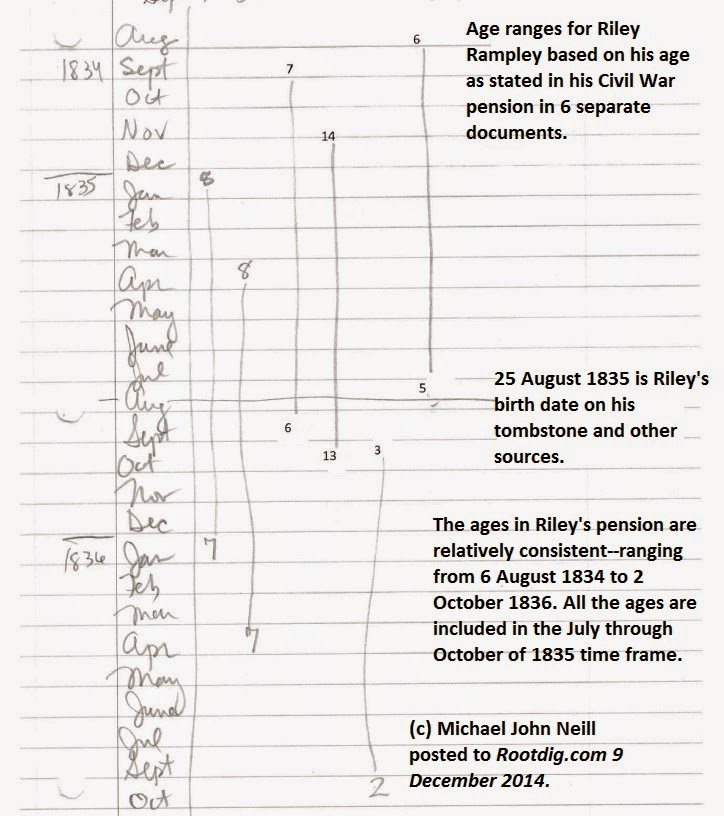 Aug
1834 Sept
Oct
Nov
Dec
1835 Jan
Feb
Mar
Apr
May
June
Jul
Aug
Sept
Oct
Nov
Dec
1836 Jan
Feb
Mar
Apr
May
June
Jul
Sept
Oct
8
7
8
7
7
6
14
13
6
5
3
2
Age ranges for Riley
Rampley based on his age
as stated in his Civil War
pension in 6 separate
documents.
25 August 1835 is Riley's
birth date on his
tombstone and other
sources.
The ages in Riley's pension are
relatively consistent--ranging
from 6 August 1834 to 2
October 1836. All the ages are
included in the July through
October of 1835 time frame.
(c) Michael John Neill
posted to Rootdig.com 9
December 2014.